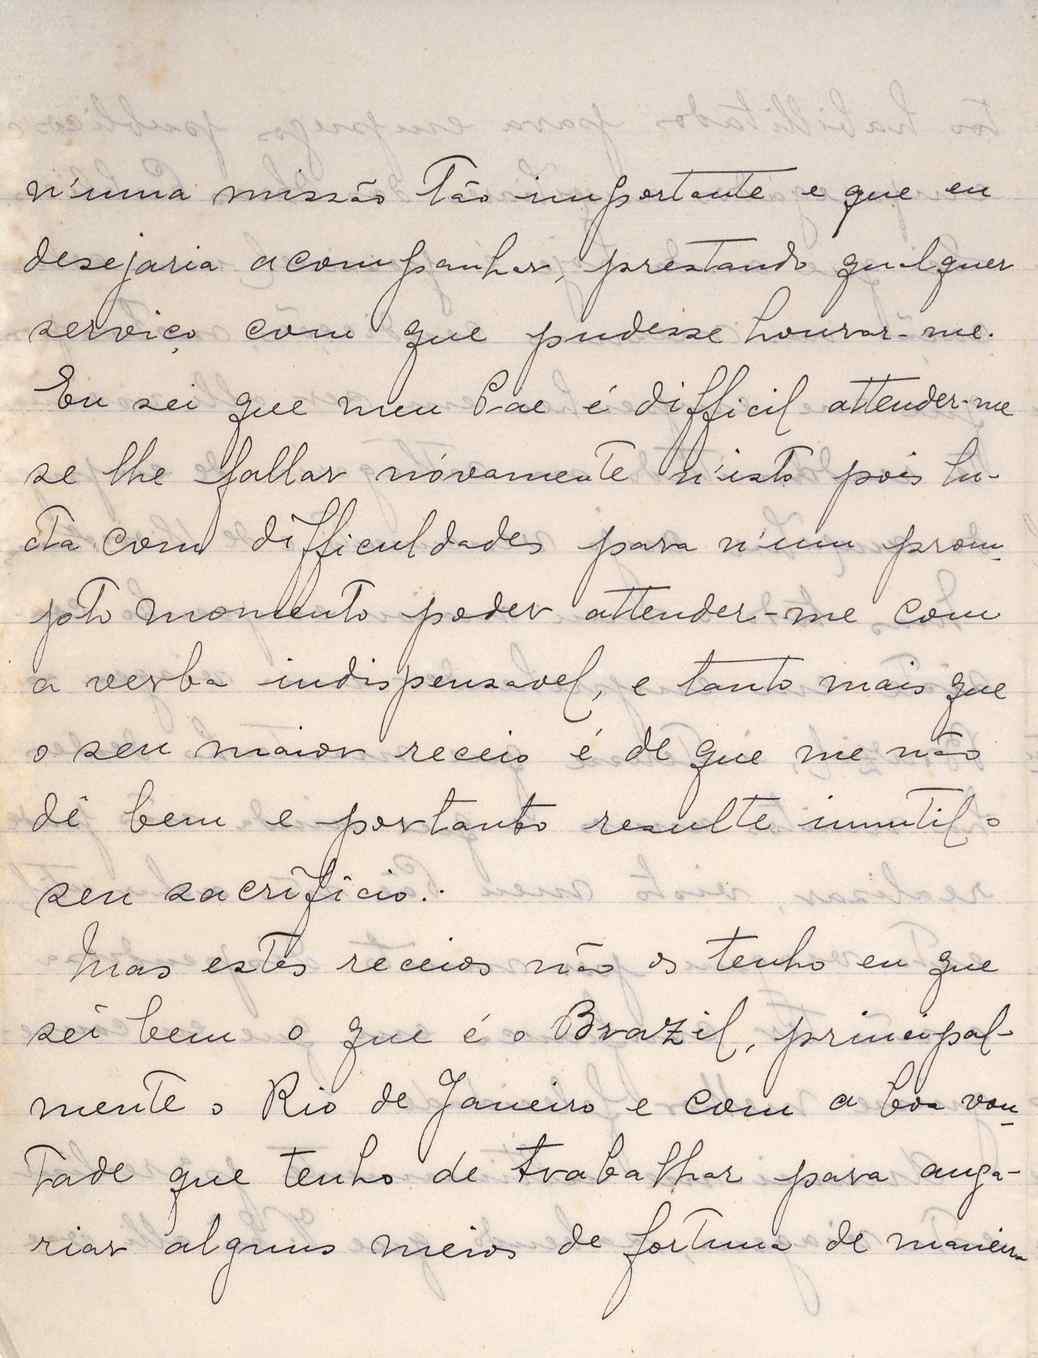 n'uma missão tão importante e que eu
desejaria acompanhar, prestando qualquer
serviço com que pudesse honrar-me.
Eu sei que meu Pae é difficil attender-me
se lhe fallar nóvamente n'isto pois lu-
cta com difficuldades para n'um prom-
pto momento poder attender-me com
a verba indispensavel, e tanto mais que
o seu maior receio é de que me não
dê bem e portanto resulte innutil o
seu sacrificio.
Mas estes receios não os tenho eu que
sei bem o que é o Brazil, principal-
mente o Rio de Janeiro e com a boa von-
tade que tenho de trabalhar para anga-
riar alguns meios de fortuna de maneira